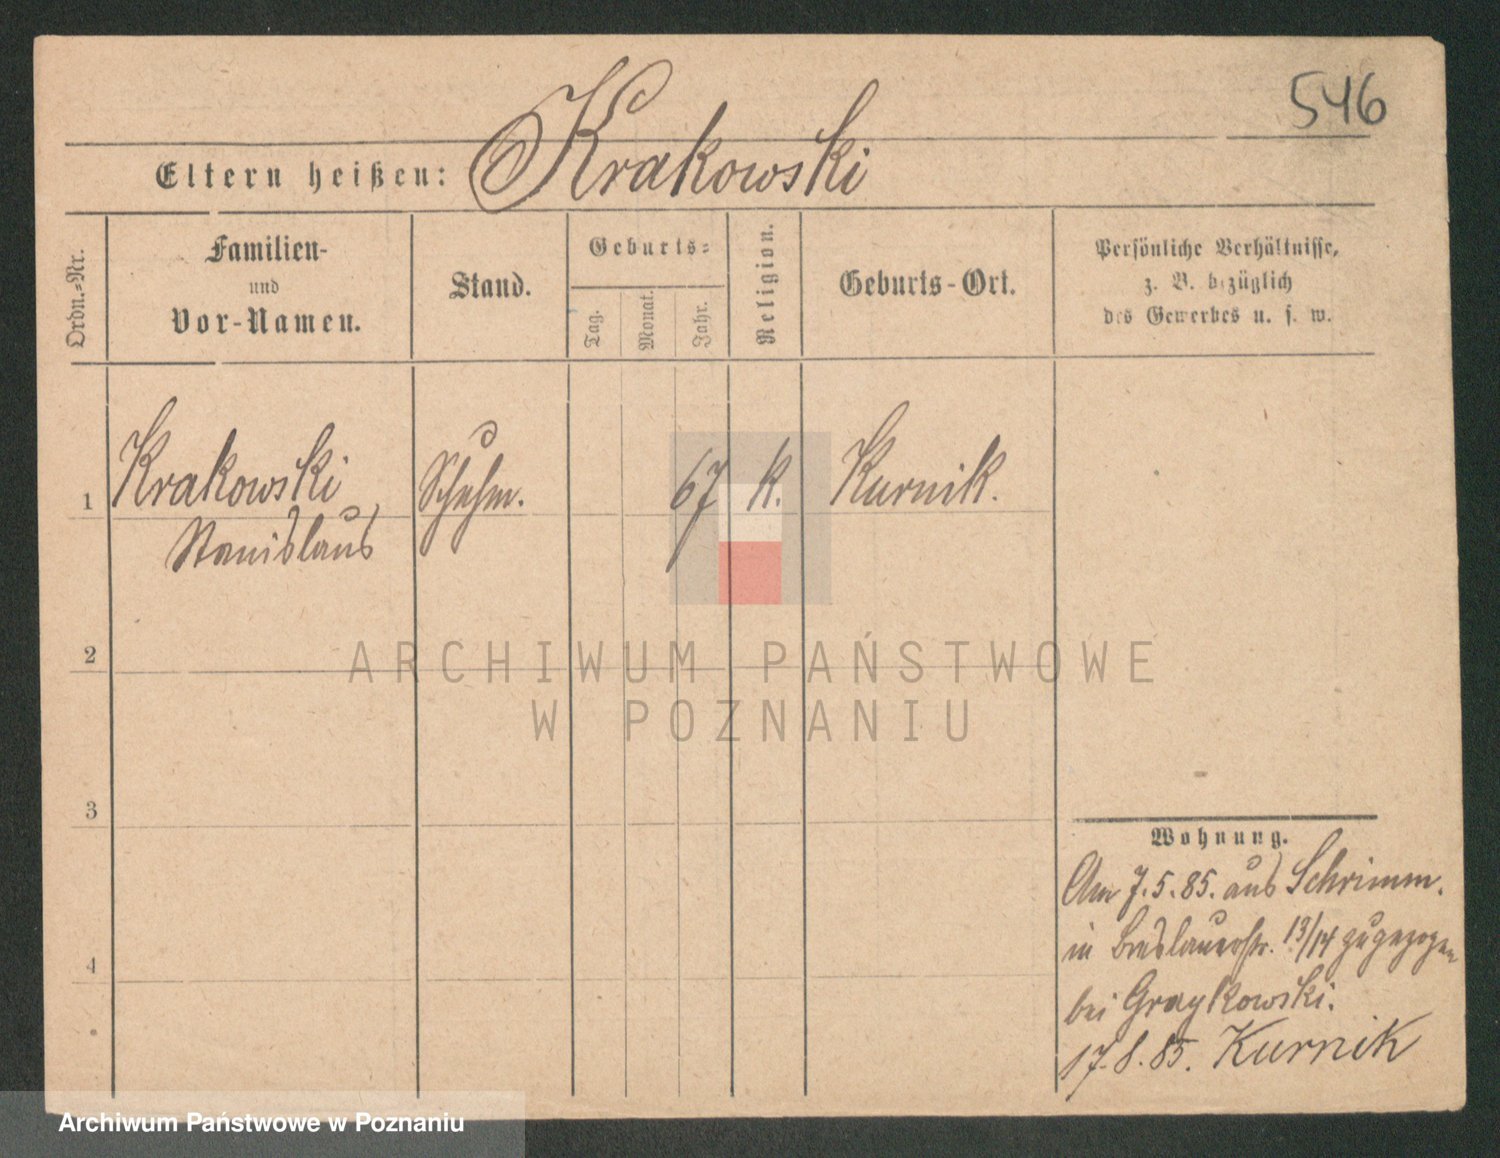 546
Eltern heißen: Krakowski
Ordn.-Nr.
Familien-
und
Vor-Namen.
Stand.
Geburts-
Tag.
Monat.
Jahr.
Religion.
Geburts-Ort.
Persönliche Verhältnisse,
z. B. bezüglich
des Gewerbes u. s. w.
1 Krakowski Schuhm. 67 k. Kurnik.
Stanislaus
2
3
4
ARCHIWUM PAŃSTWOWE
W POZNANIU
Wohnung.
Am 7.5.85. aus Schrimm.
in Breslauerstr. 13/14 zugezogen
bei
17.8.85. Kurnik
Archiwum Państwowe w Poznaniu